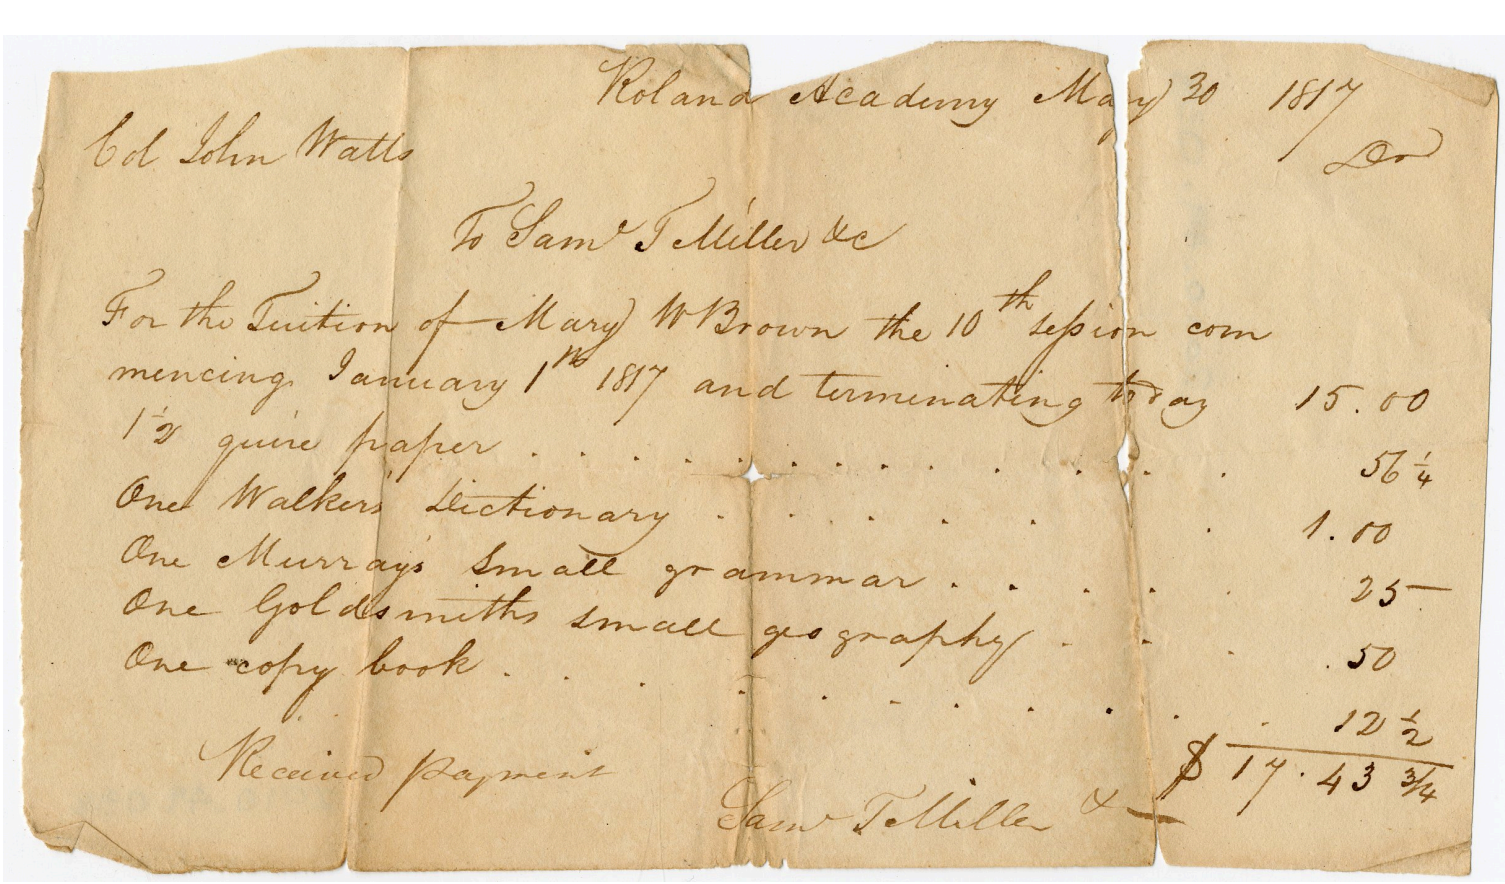 Roland Academy May 30 1817
Col John Watts Dr
To Saml T Miller &c
For the Tuition of Mary W Brown the 10th session com
mencing January 1th 1817 and terminating today 15.00
1 1/2 quire paper . . . . . . . . . . . . 56 1/4
One Walker's Dictionary . . . . . . 1.00
One Murray's small grammar . . . . 25
One Goldsmiths small geography . . . .50
One copy book . . . . . . . . . . 12 1/2
$ 17.43 3/4
Received payment
Saml T Miller &